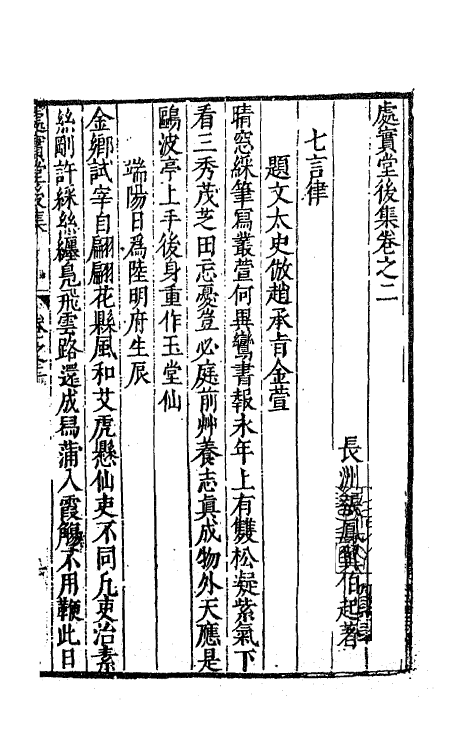 處實堂後集卷之二
長洲張鳳翼伯起著
七言律
題文太史倣趙承旨金萱
晴窓綵筆寫叢萱何異鸞書報永年上有雙松凝紫氣下
看三秀茂芝田忘憂豈必庭前艸養志真成物外天應是
鷗波亭上手後身重作玉堂仙
端陽日爲陸明府生辰
金鄉試宰自翩翩花縣風和艾虎懸仙吏不同凢吏治素
絲剛許綵絲纏鳬飛雲路還成舄蒲入霞觴不用鞭此日
處實堂後集
卷之二